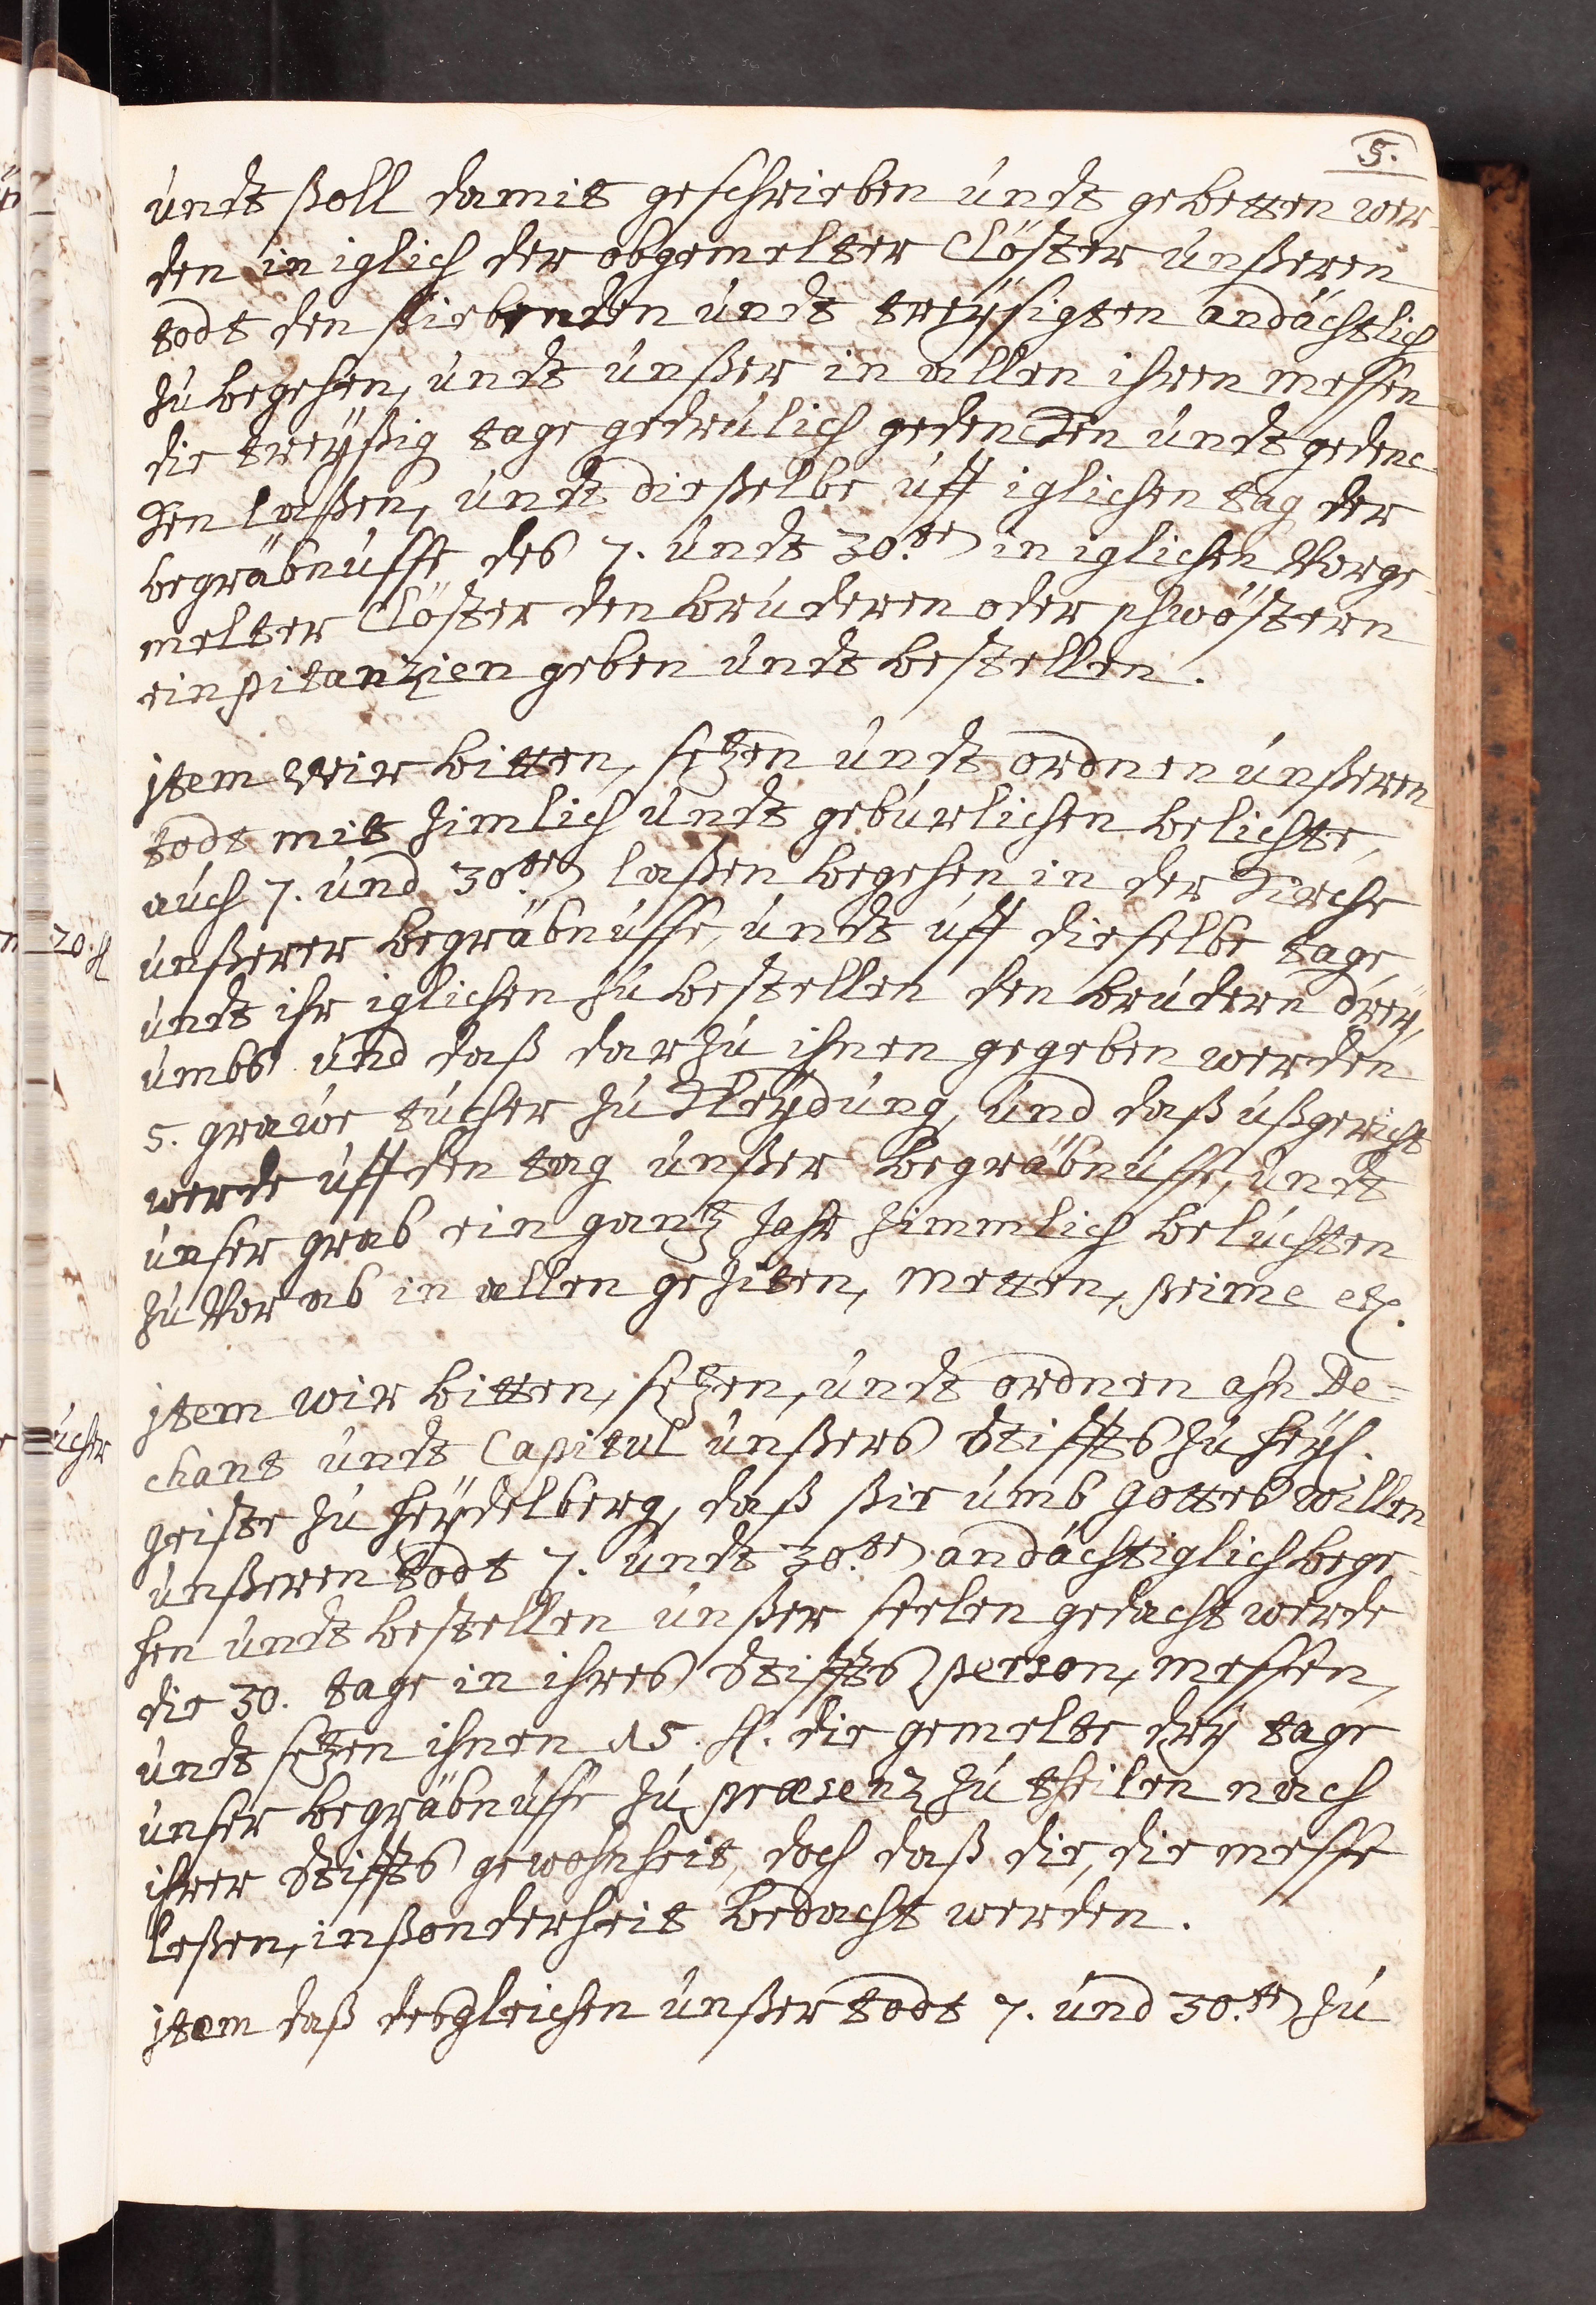 5.
undt ßoll damit geschrieben undt gebetten wer-
den in iglich der obgemelter Clöster unßeren
todt den siebenden undt treysigten andächtlich
zu begehen, undt unßer in allen ihren messen
die treyßig tage getreulich gedencken undt gedenc-
ken laßen, undt dieselbe uff iglichen tag der
begräbnusse des 7. undt 30.te in iglichen vorge-
melter Clöster den bruderen oder schwöstern
ein pitanzien geben undt bestellen.
jtem Wir bitten, setzen undt ordnen unßeren
todt mit zimlich undt geburlichen belichte,
auch 7. und 30te laßen begehen in der Kirche
unßerer begräbnusse, undt uff dieselbe tage,
undt ihr iglichen zu bestellen den brudern drey,
umbs und daß darzu ihnen gegeben werden
5. grawe tucher zu Kleydung, und daß ußgericht
werde uff den tag unßer begräbnusse, undt
unser grab ein gantz Jahr zimmlich beluchten
zu vor ab in allen geziten, metten, prime etc.
jtem wir bitten, setzen, undt ordnen ahn De=
chant undt Capitul unßers Stiffts zu heyl.
geiste zu heydelberg, daß ßie umb gottes willen
unßeren todt 7. undt 30.te andächtiglich bege-
hen undt bestellen unßer seelen gedacht werde
die 30. tage in ihres Stiffts person, messen,
undt setzen ihnen 15. fl. die gemelte drey tage
unser begräbnusse zu præsenz zu theilen nach
ihrer Stiffts gewohnheit, doch daß die, die messe
leßen, inßonderheit bedacht werden.
jtem daß desgleichen unßer todt 7. und 30.te zu
20. fl
ücher